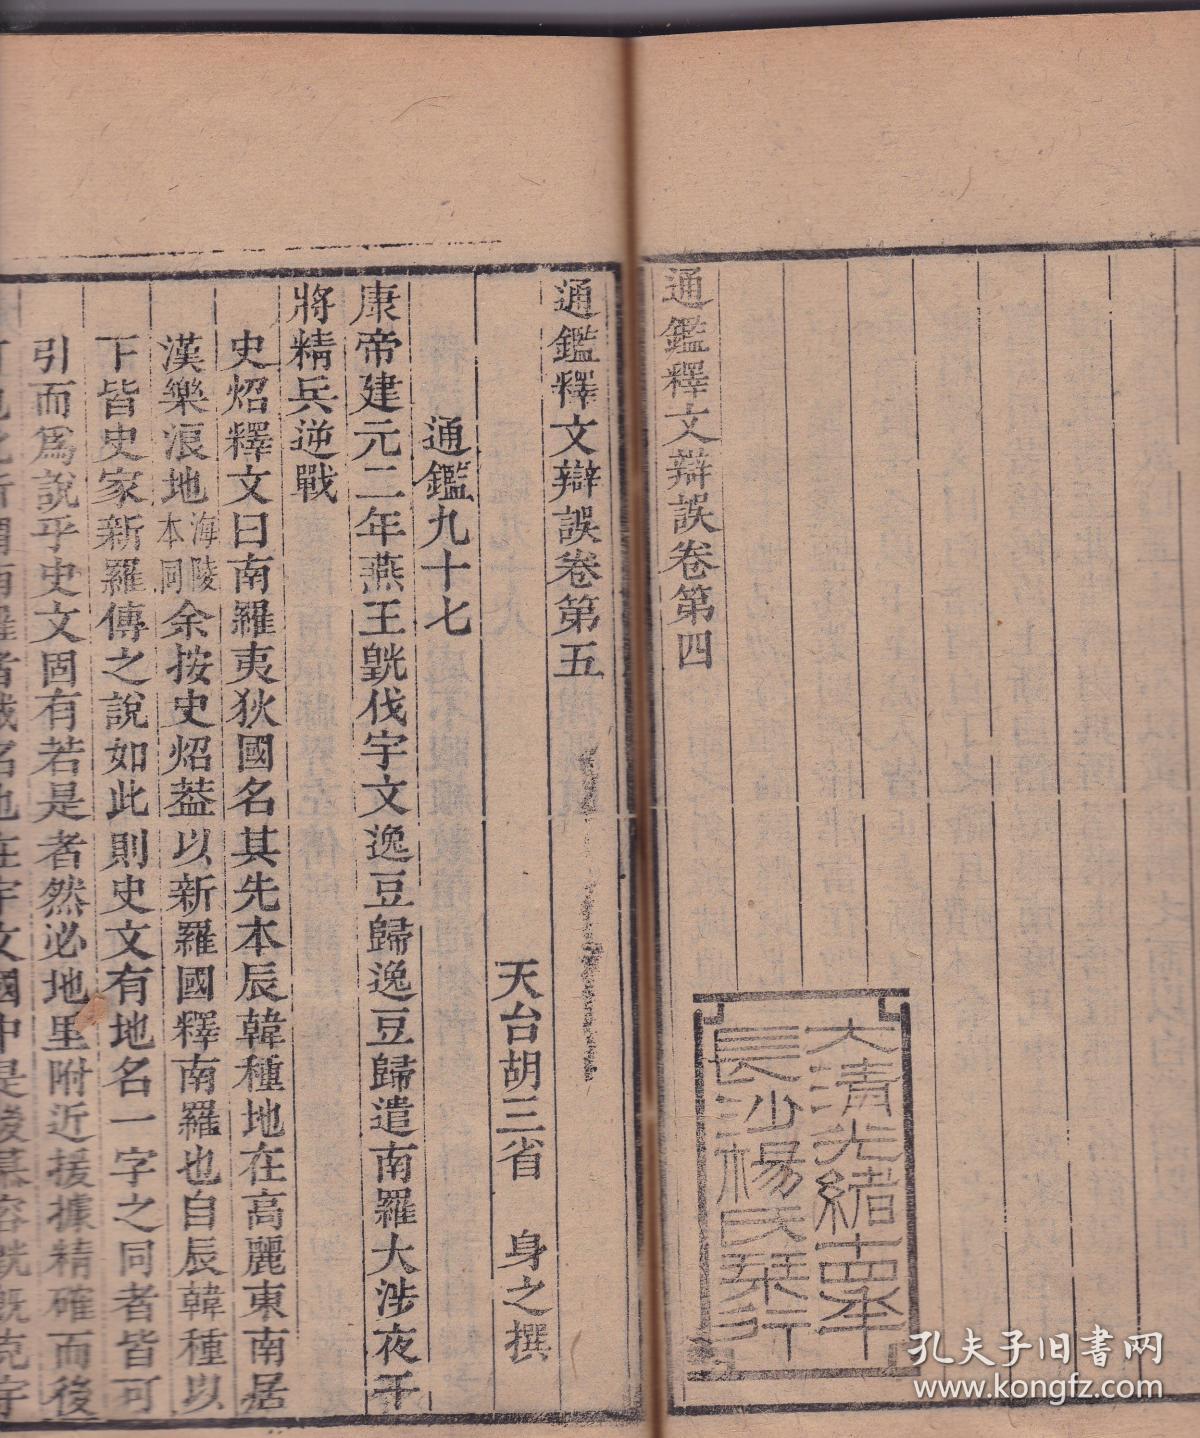 通鑑釋文辯誤卷第四
大清光緒十四年
長沙楊氏栞行
通鑑釋文辯誤卷第五
天台胡三省 身之撰
通鑑九十七
康帝建元二年燕王皝伐宇文逸豆歸逸豆歸遣南羅大涉夜干
將精兵逆戰
史炤釋文曰南羅夷狄國名其先本辰韓種地在高麗東南居
漢樂浪地海陵本同余按史炤葢以新羅國釋南羅也自辰韓種以
下皆史家新羅傳之說如此則史文有地名一字之同者皆可
引而為說乎史文固有若是者然必地里附近援據精確而後
者城名也在宇文國中是後慕容皝既克宇
孔夫子旧书网
www.kongfz.com